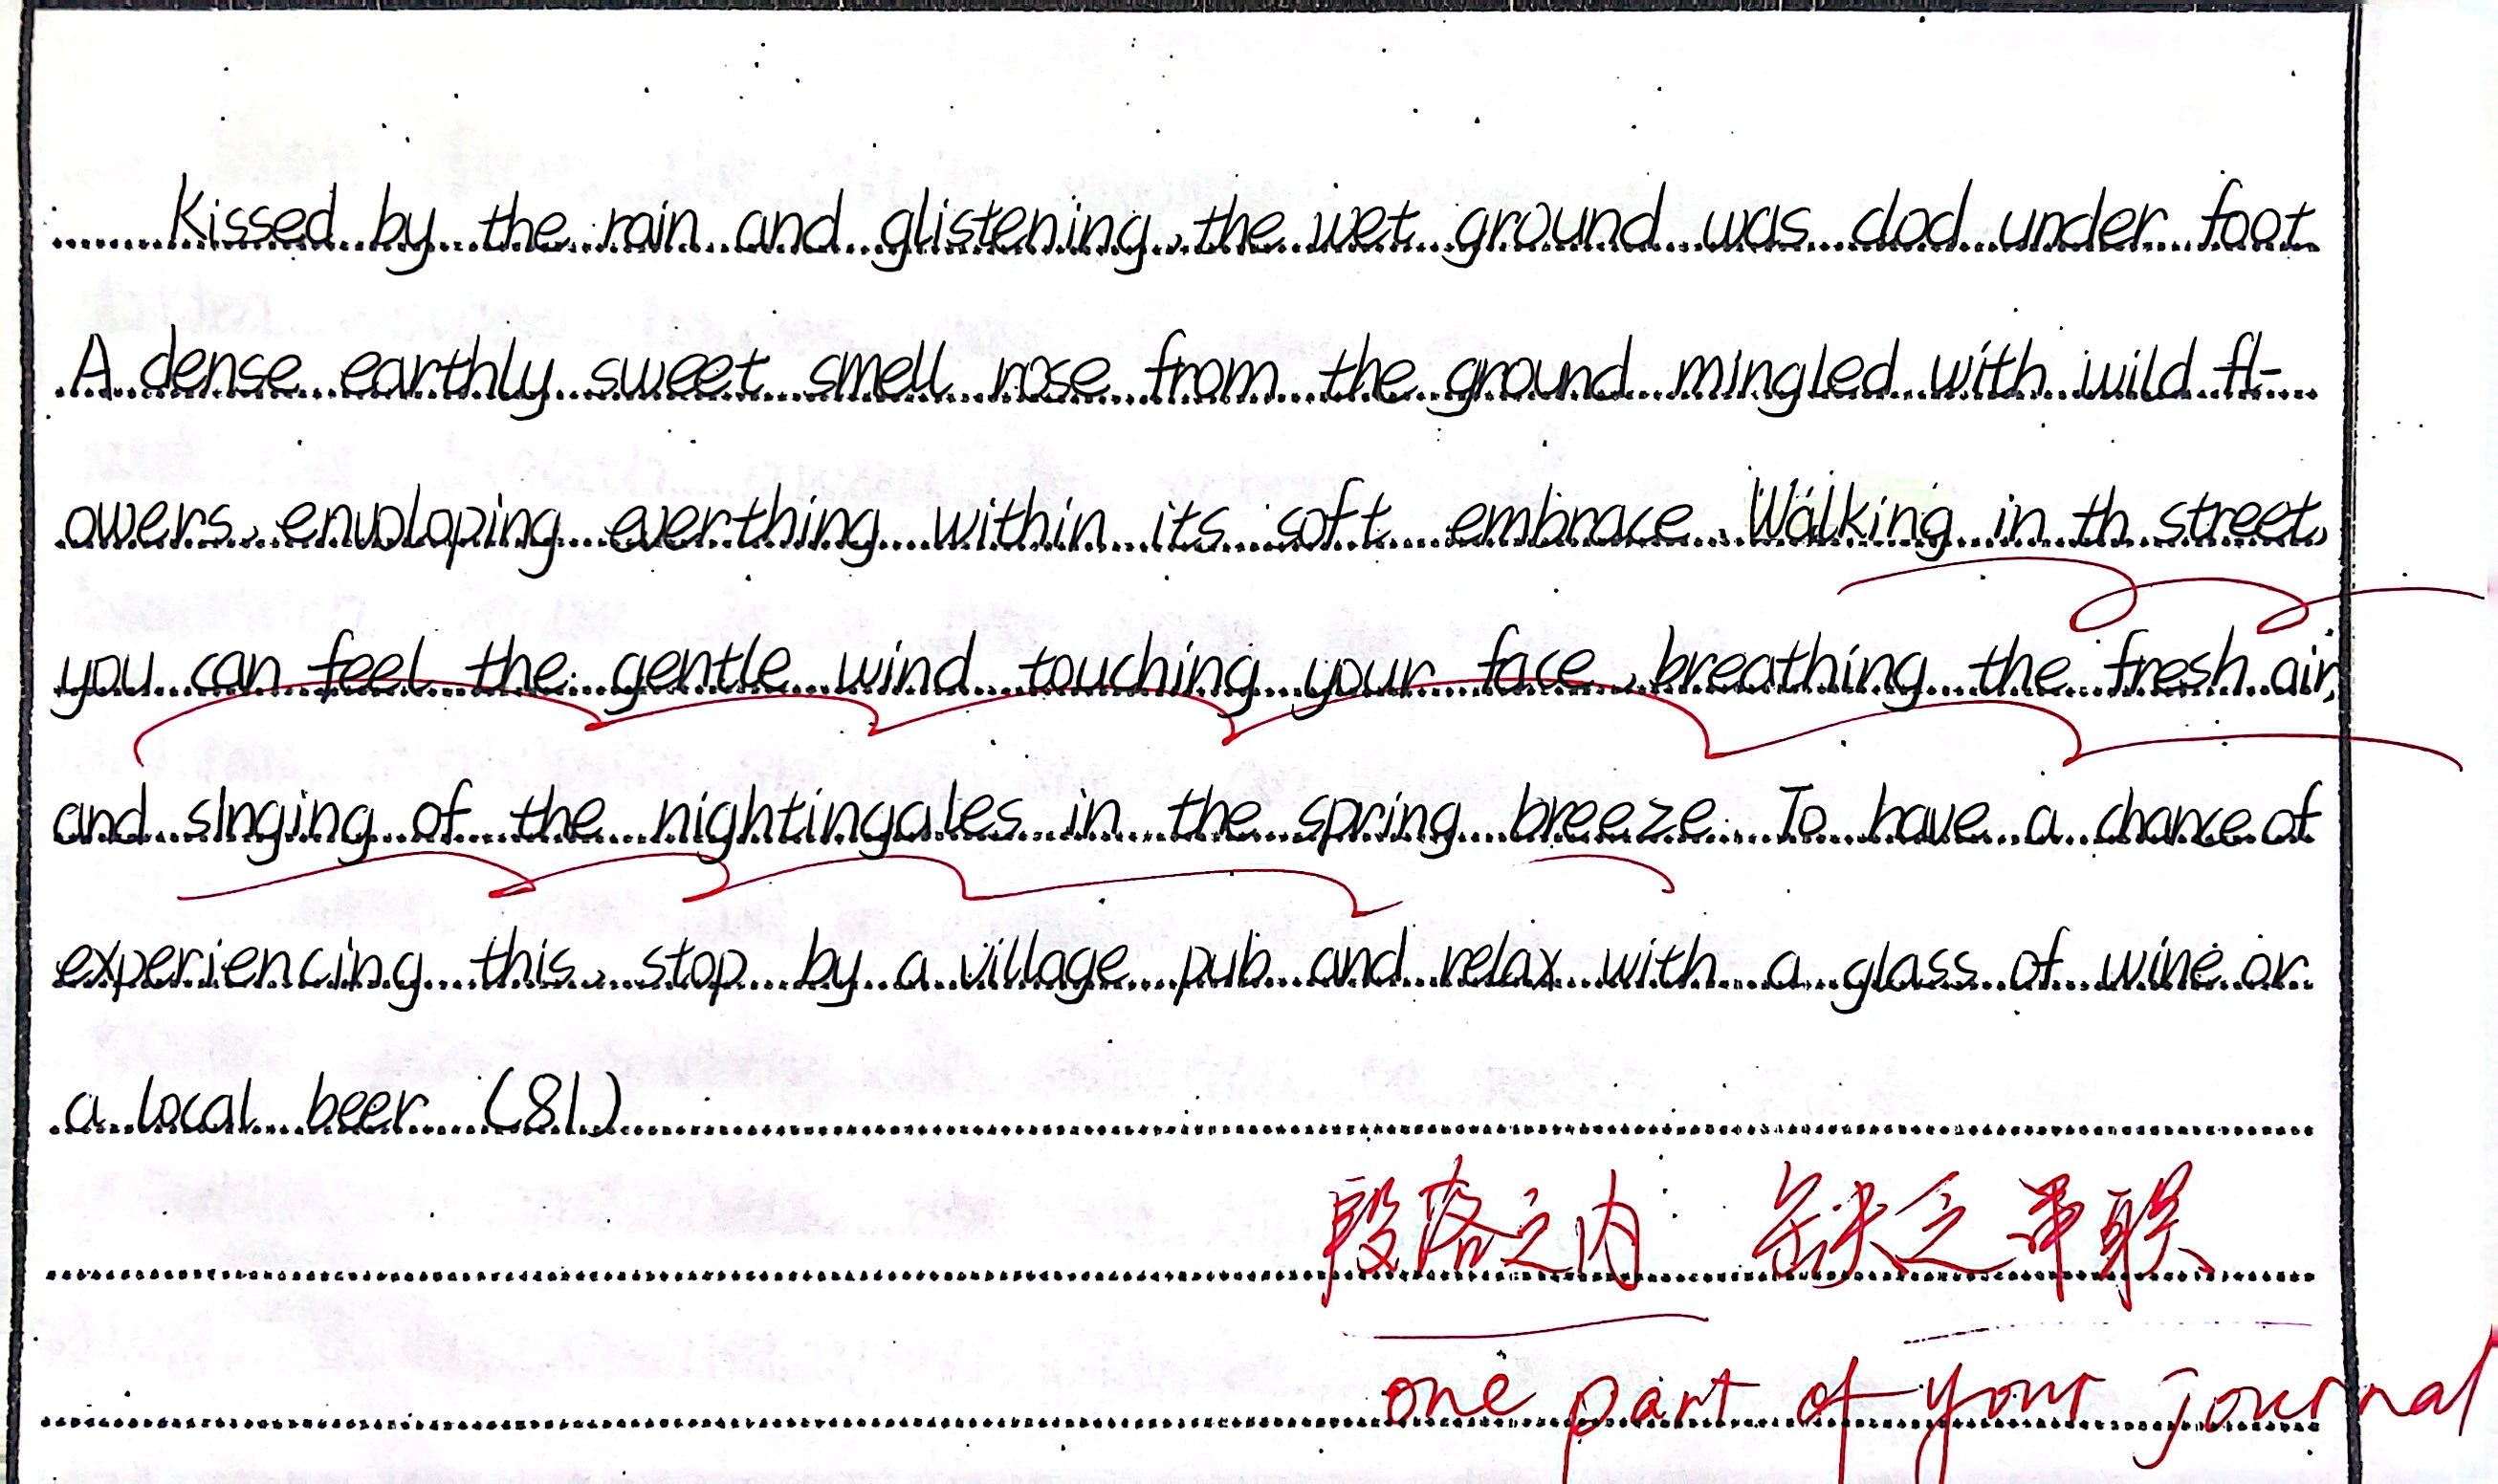 Kissed by the rain and glistening, the wet ground was clod under foot.
A dense earthly sweet smell rose from the ground mingled with wild fl-
owers, envoloping everthing within its soft embrace. Walking in th street,
you can feel the gentle wind touching your face, breathing the fresh air,
and singing of the nightingales in the spring breeze. To have a chance of
experiencing this, stop by a village pub and relax with a glass of wine or
a local beer (81)
段落之内 缺乏串联
one part of your journal